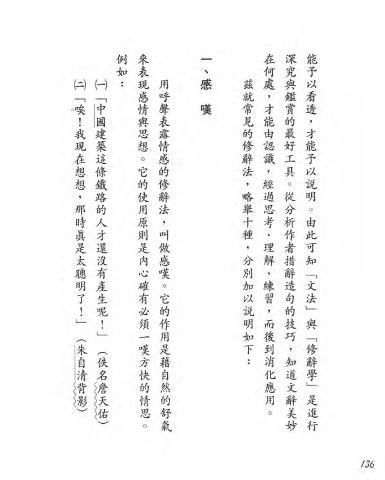 能予以看透，才能予以說明。由此可知「文法」與「修辭學」是進行
深究與鑑賞的最好工具。從分析作者措辭造句的技巧，知道文辭美妙
在何處，才能由認識，經過思考、理解、練習，而後到消化應用。
茲就常見的修辭法，略舉十種，分別加以說明如下：
一、感　嘆
用呼聲表露情感的修辭法，叫做感嘆。它的作用是藉自然的舒氣
來表現感情與思想。它的使用原則是內心確有必須一嘆方快的情思。
例如：
㈠「中國建築這條鐵路的人才還沒有產生呢！」（佚名詹天佑）
㈡「唉！我現在想想，那時真是太聰明了！」（朱自清背影）
136